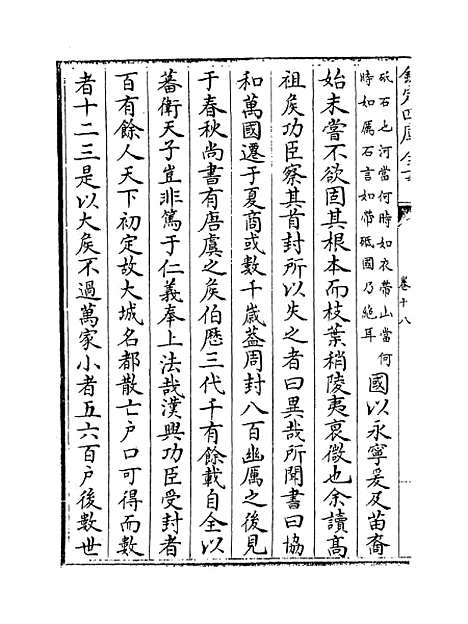 欽定四庫全書
卷十八
砥石也河當何時如衣帶山當何
時如厲石言如帶砥國乃絶耳
國以永寧爰及苗裔
始未嘗不欲固其根本而枝葉稍陵夷衰微也余讀髙
祖矦功臣察其首封所以失之者曰異哉所聞書曰協
和萬國遷于夏商或數千嵗葢周封八百幽厲之後見
于春秋尚書有唐虞之矦伯歴三代千有餘載自全以
蕃衛天子豈非篤于仁義奉上法哉漢興功臣受封者
百有餘人天下初定故大城名都散亡户口可得而數
者十二三是以大矦不過萬家小者五六百户後數世